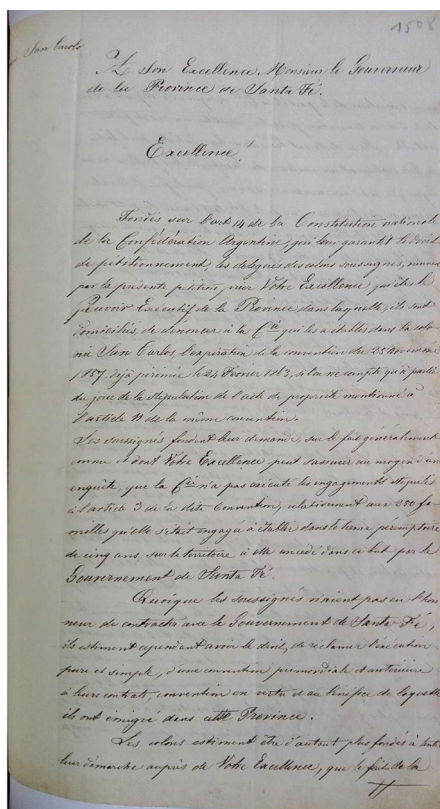 1508
San Carlos
A Son Excellence Monsieur le Gouverneur
de la Province de Santa Fé.
Excellence!
Fondés sur l'art 14 de la Constitution nationale
de la Confédération Argentine, qui leur garantit le droit
de pétitionnement, les délégués des colons soussignés, viennent
par la présente pétition, prier Votre Excellence qui êtes le
Pouvoir Exécutif de la Province dans laquelle, ils sont
domiciliés, de dénoncer à la Cie qui les a établis dans la colo-
nie San Carlos, l'expiration de la convention du 25 Novembre
1857, déjà périmée le 24 Février 1863, si l'on ne compte qu'à partir
du jour de la stipulation de l'acte de propriété mentionné à
l'article 11 de la même convention.
Les soussignés fondent leur demande, sur le fait généralement
connu et dont Votre Excellence peut s'assurer au moyen d'une
enquête, que la Cie n'a pas exécuté les engagements stipulés
à l'article 3 de la dite Convention, relativement aux 200 fa-
milles qu'elle s'était engagée à établir dans le terme péremptoire
de cinq ans, sur le territoire à elle concédé dans ce but par le
Gouvernement de Santa Fé.
Quoique les soussignés n'aient pas eu l'hon
neur de contracter avec le Gouvernement de Santa-Fé,
ils estiment cependant avoir le droit, de réclamer l'exécution
pure et simple, d'une convention primordiale et antérieure
à leurs contrats, convention en vertu et au bénéfice de laquelle
ils ont émigré dans cette Province.
Les colons estiment être d'autant plus fondés à tenter
leur démarche auprès de Votre Excellence, que le fait de la